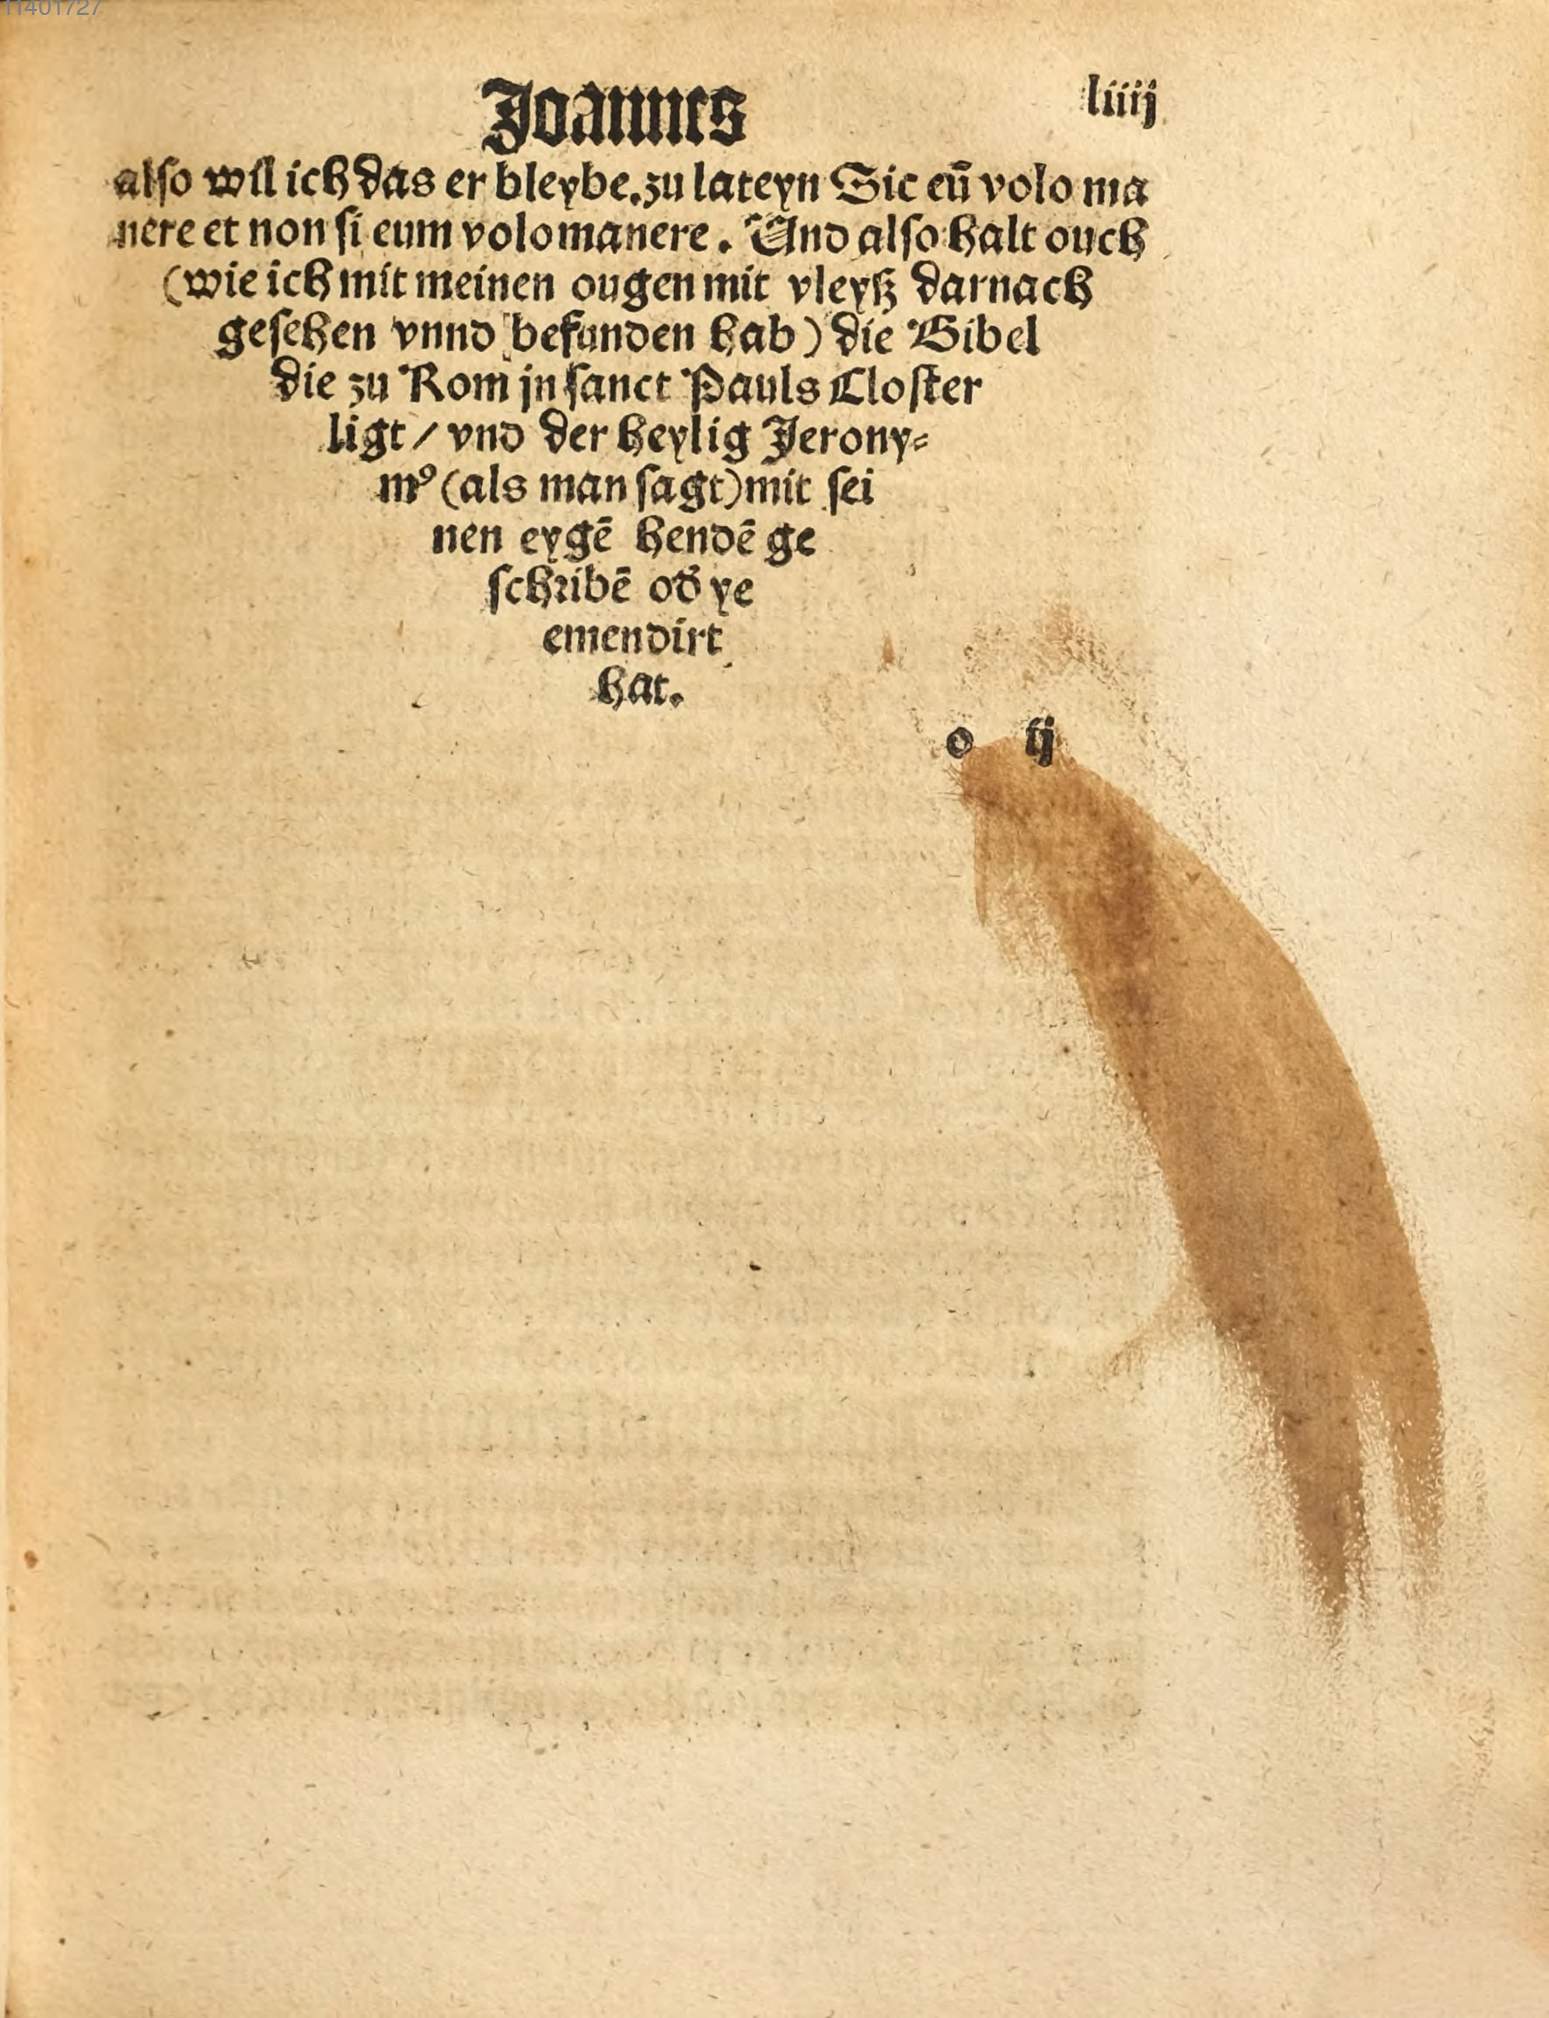 11401727
Joannes liiij
also wil ich das er bleybe. zu lateyn Sic eū volo ma
nere et non si eum volo manere. Und also halt ouch
(wie ich mit meinen ougen mit vleyß darnach
gesehen vnnd befunden hab) die Bibel
die zu Rom jn sanct Pauls Closter
ligt / vnd der heylig Jerony⸗
mꝰ (als man sagt) mit sei
nen eygē hendē ge
schribē od̕ ye
emendirt
hat.
o ij